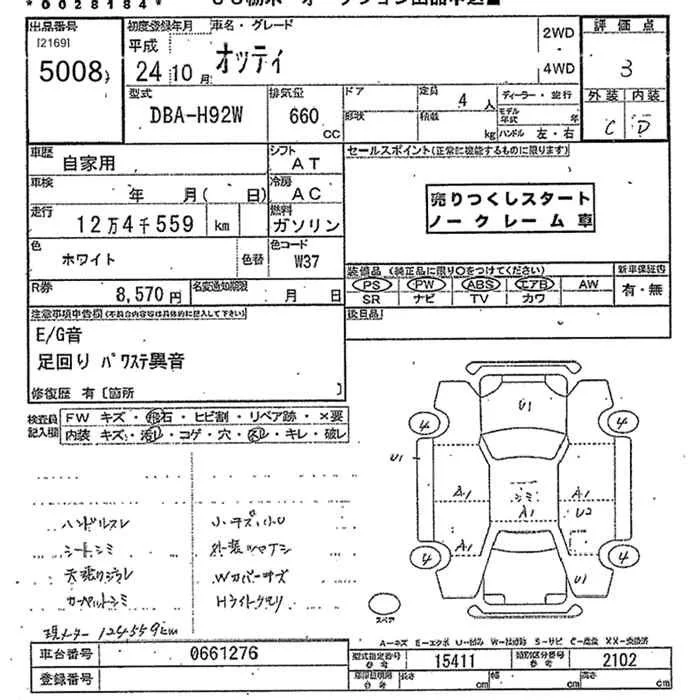 *0028184*
出品番号
[2169]
5008
初度登録年月
平成
24年10月
車名・グレード
オッティ
2WD
4WD
評価点
3
外装 内装
C D
型式
DBA-H92W
排気量
660
CC
ドア
形状
定員
4人
積載
kg
ディーラー・並行
モデル年式 年
ハンドル 左・右
車歴
自家用
シフト
AT
車検
年 月( 日)
冷房
AC
走行
12万4千559 km
燃料
ガソリン
色
ホワイト
色替
色コード
W37
R券
8,570円
名変通知期限
月 日
セールスポイント(正常に機能するものに限ります)
売りつくしスタート
ノークレーム車
装備品(純正品に限り○をつけてください)
PS PW ABS エアB AW
SR ナビ TV カワ
新車保証書
有・無
後日品
注意事項申告欄(不具合内容等は具体的に記入して下さい)
E/G音
足回り パワステ異音
修復歴 有〔箇所 〕
検査員記入欄
FW キズ・飛石・ヒビ割・リペア跡・×要
内装 キズ・汚レ・コゲ・穴・スレ・キレ・破レ
ハンドルスレ
シートシミ
天張りジワ
カーペットシミ
小キズ・小U
外装ツヤナシ
Wカバーキズ
Hライトクモリ
現メーター 124559km
U1
4
4
U1
A1
シミ
A1
A1
U2
A1
4
4
U1
スペア
A-キズ E-エクボ U-凹み W-補修跡 S-サビ C-腐食 XX-交換済
車台番号
0661276
登録番号
型式指定番号
参考
15411
類別区分番号
参考
2102
長さ cm
幅 cm
高さ cm